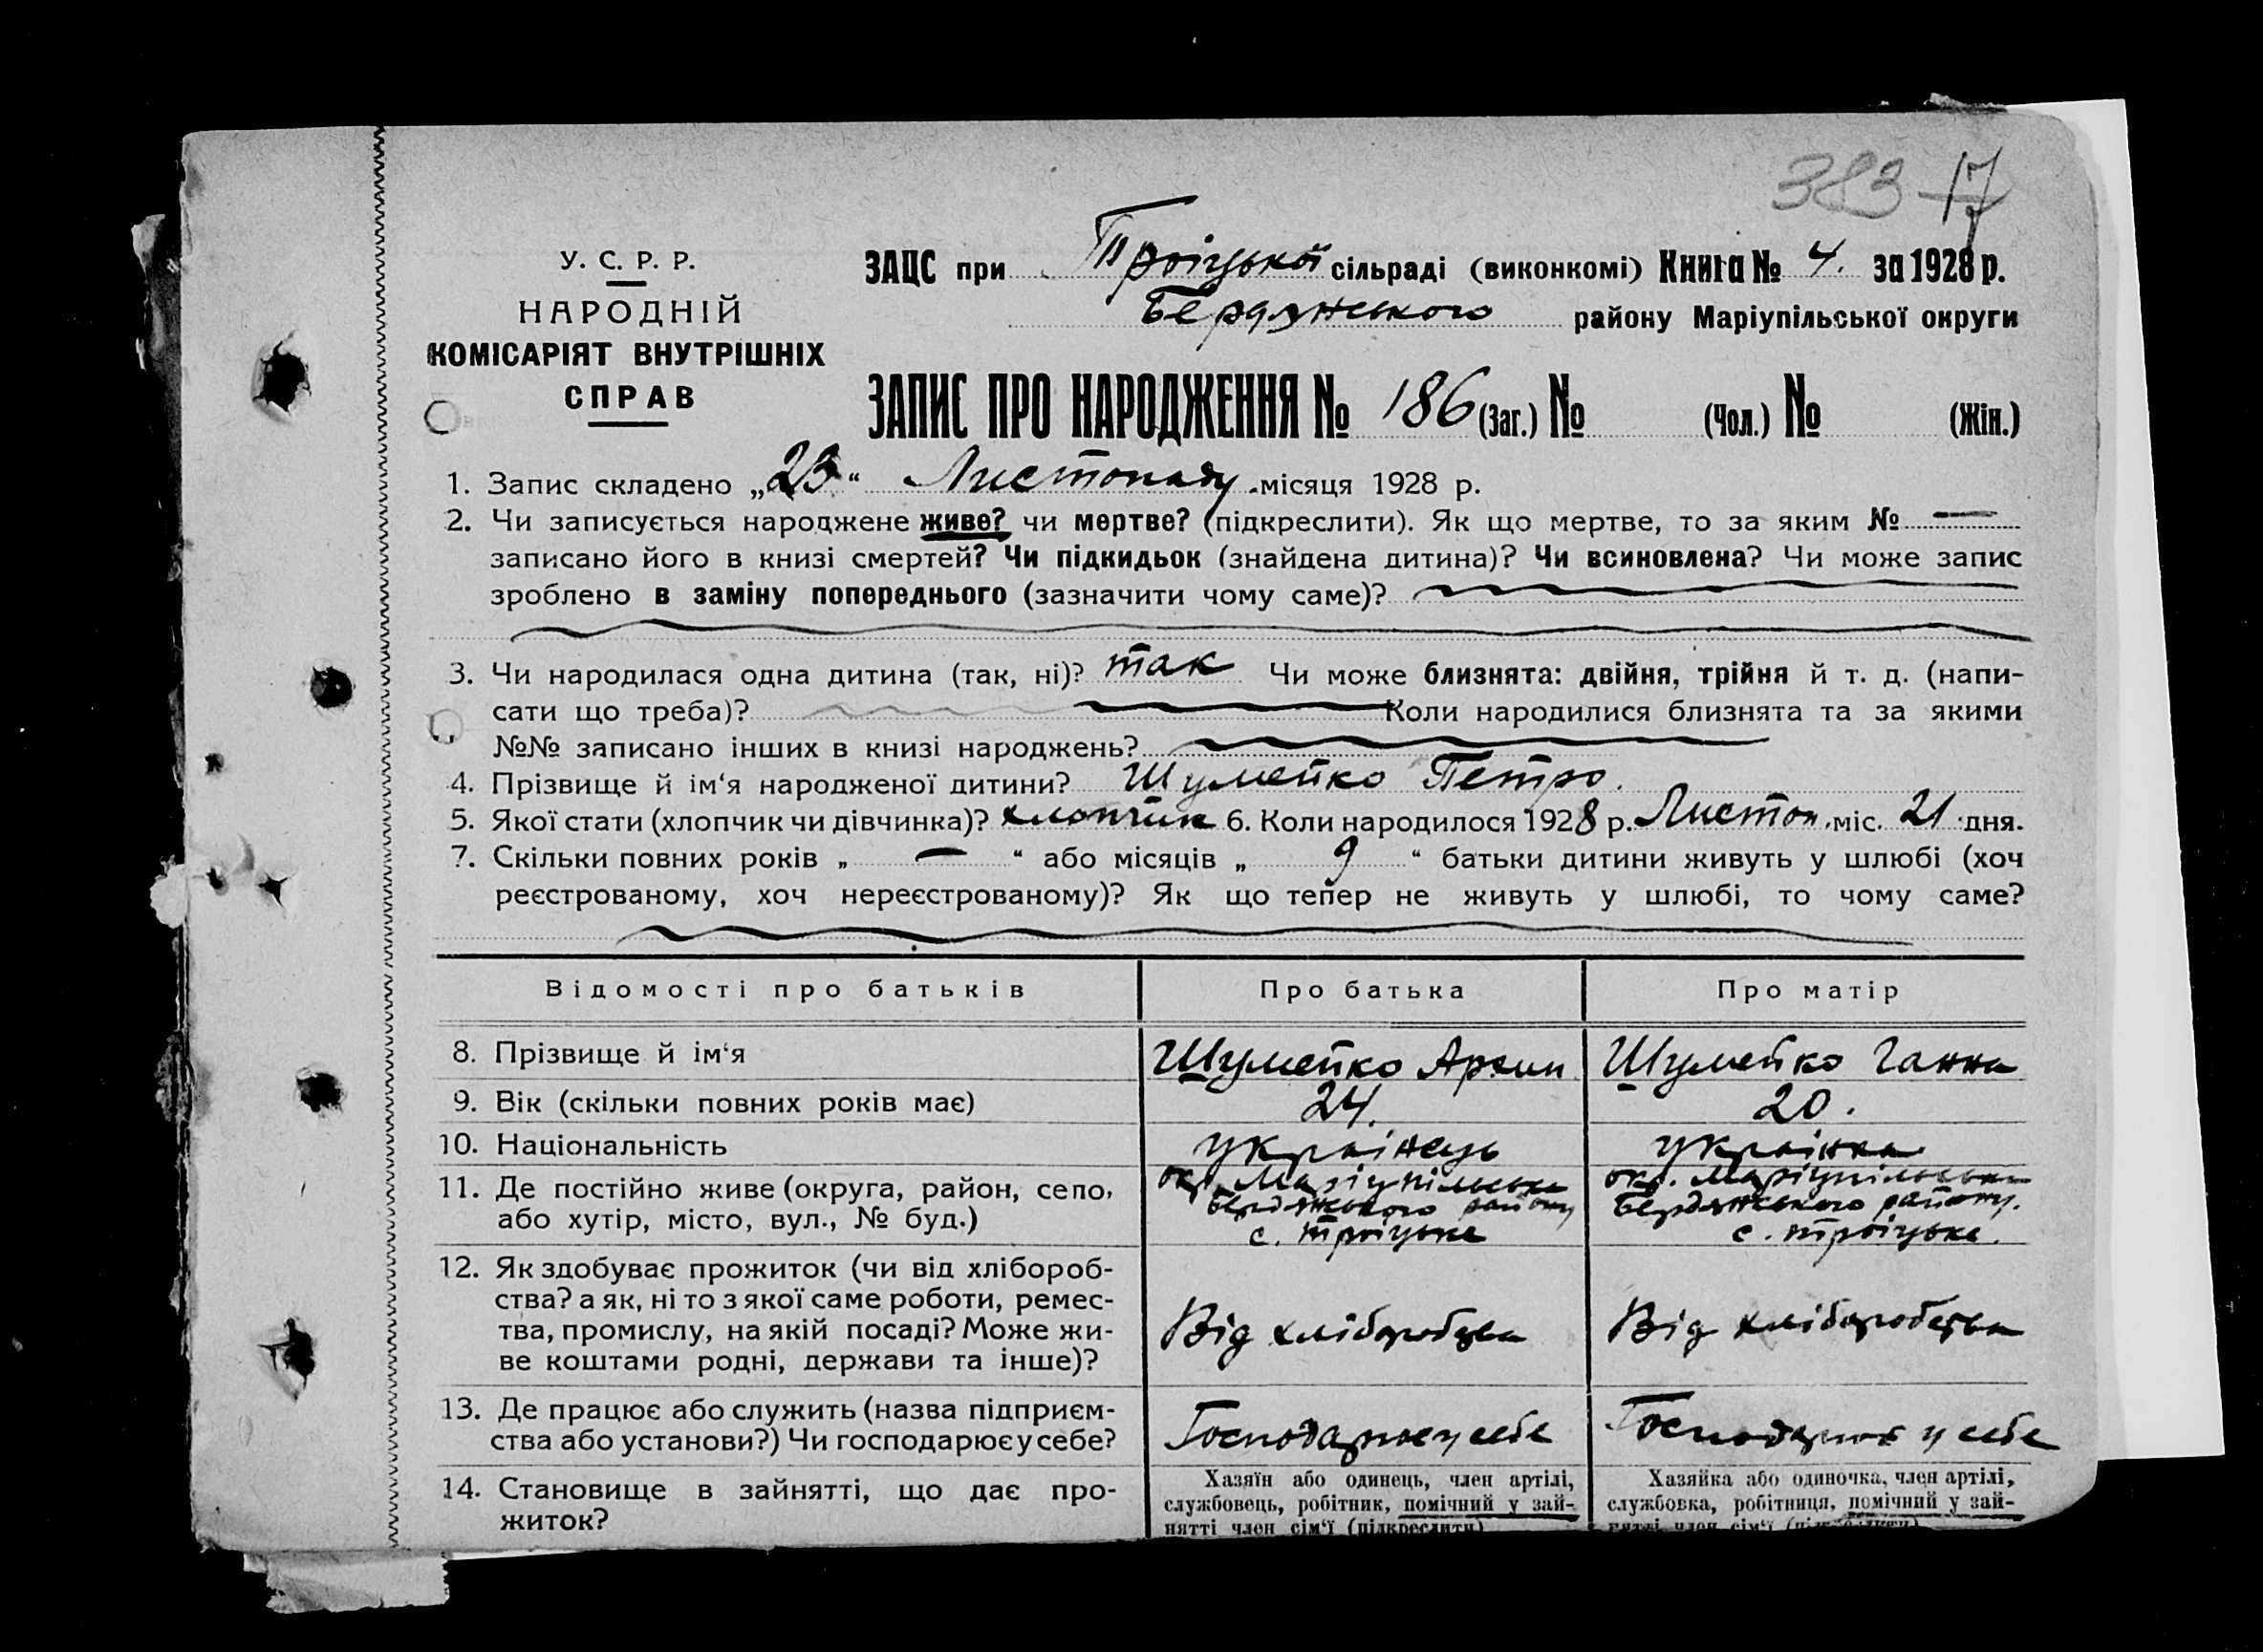 383 17
У. С. Р. Р.
НАРОДНІЙ
КОМІСАРІЯТ ВНУТРІШНІХ
СПРАВ
ЗАЦС при Троіцькой сільраді (виконкомі) Книга № 4. за 1928 р.
Бердянського району Маріупільської округи
ЗАПИС ПРО НАРОДЖЕННЯ № 186 (Заг.) № (Чол.) № (Жін.)
1. Запис складено „23“ Листопаду місяця 1928 р.
2. Чи записується народжене живе? чи мертве? (підкреслити). Як що мертве, то за яким № —
записано його в книзі смертей? Чи підкидьок (знайдена дитина)? Чи всиновлена? Чи може запис
зроблено в заміну попереднього (зазначити чому саме)?
3. Чи народилася одна дитина (так, ні)? так Чи може близнята: двійня, трійня й т. д. (напи-
сати що треба)? Коли народилися близнята та за якими
№№ записано інших в книзі народжень?
4. Прізвище й ім‘я народженої дитини? Шумейко Петро.
5. Якої стати (хлопчик чи дівчинка)? хлопчик 6. Коли народилося 1928 р. Листоп. міс. 21 дня.
7. Скільки повних років „ — “ або місяців „ 9 “ батьки дитини живуть у шлюбі (хоч
реєстрованому, хоч нереєстрованому)? Як що тепер не живуть у шлюбі, то чому саме?
Відомості про батьків Про батька Про матір
8. Прізвище й ім‘я Шумейко Архип Шумейко Ганна
9. Вік (скільки повних років має) 24. 20.
10. Національність українець українка
11. Де постійно живе (округа, район, село,
або хутір, місто, вул., № буд.)
окр. Маріупільська
Бердянського району
с. Троіцьке
окр. Маріупільська
Бердянського району.
с. Троіцьке.
12. Як здобуває прожиток (чи від хлібороб-
ства? а як, ні то з якої саме роботи, ремес-
тва, промислу, на якій посаді? Може жи-
ве коштами родні, держави та інше)?
Від хліборобства
Від хліборобства
13. Де працює або служить (назва підприєм-
ства або установи?) Чи господарює у себе?
Господарює у себе
Господарює у себе
14. Становище в зайнятті, що дає про-
житок?
Хазяїн або одинець, член артілі,
службовець, робітник, помічний у зай-
нятті член сім‘ї (підкреслити)
Хазяйка або одиночка, член артілі,
службовка, робітниця, помічний у зай-
нятті член сім‘ї (підкреслити)